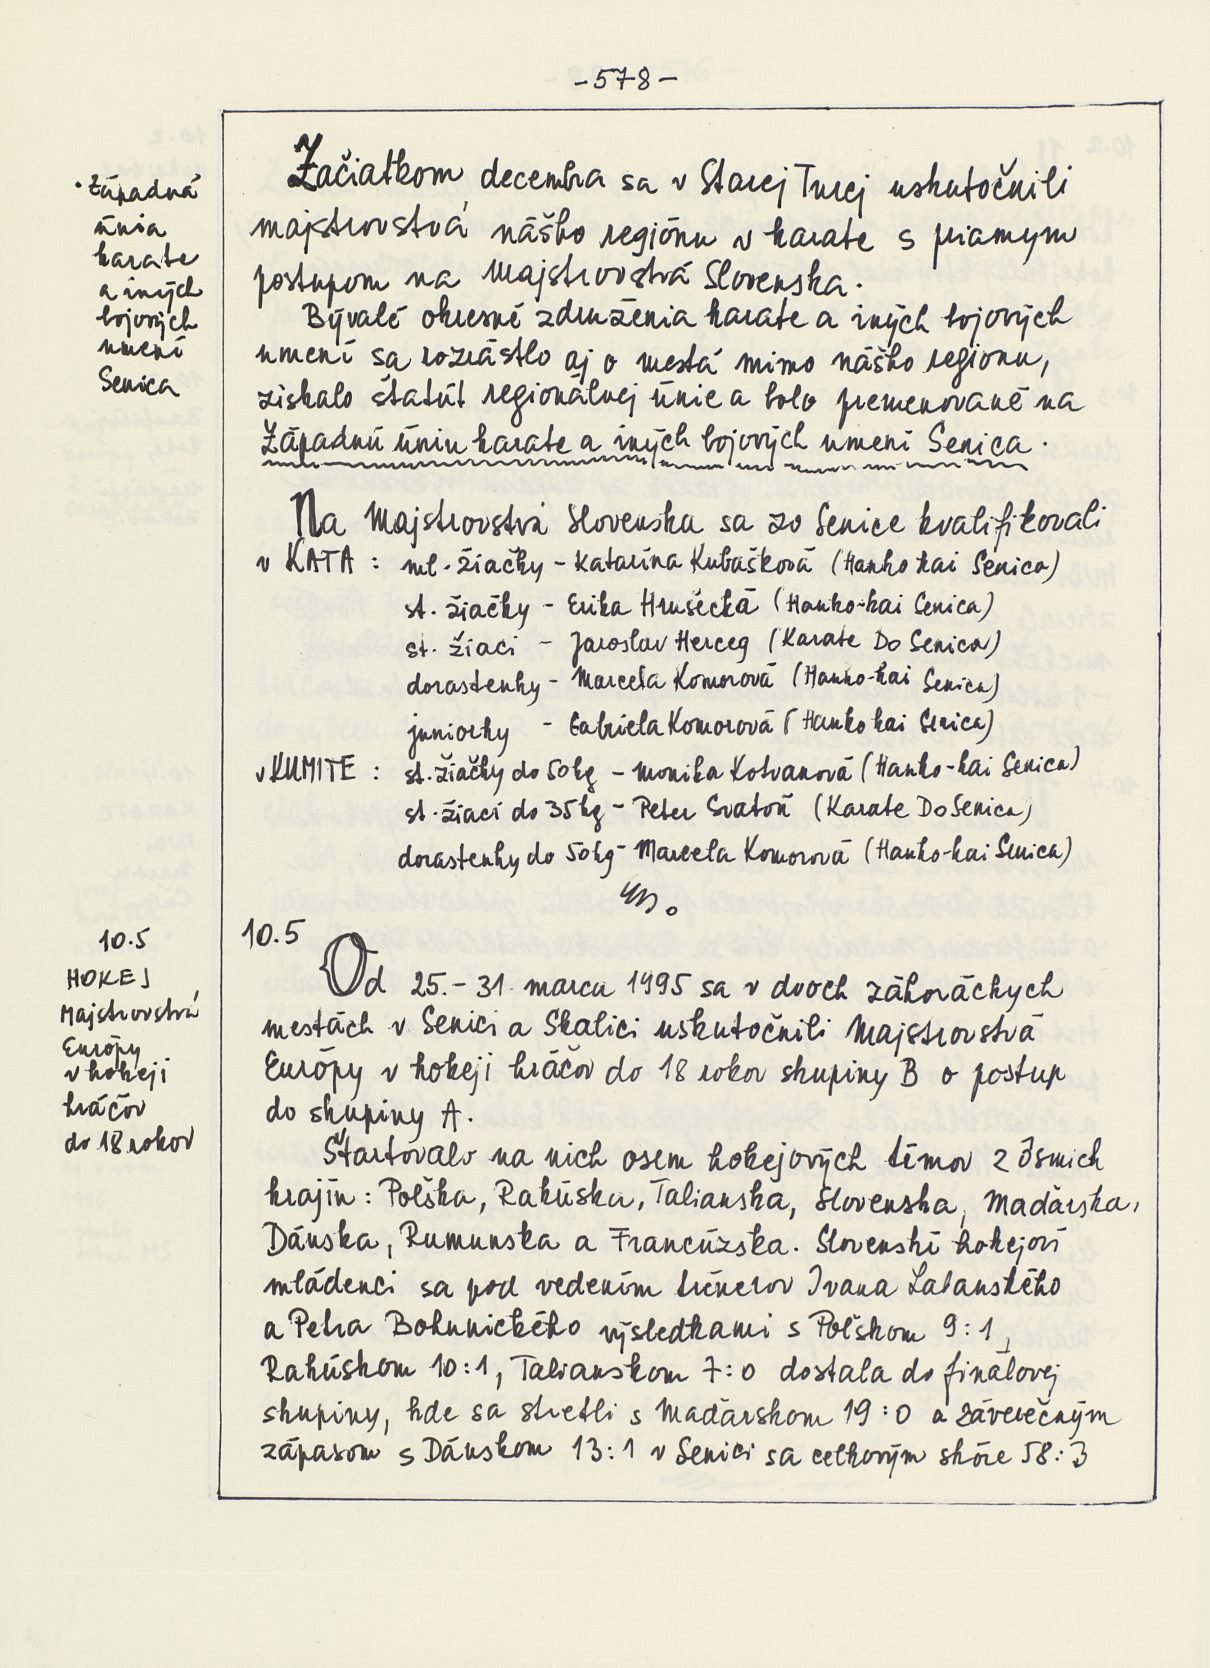 -578-
· Západná
únia
karate
a iných
bojových
umení
Senica
Začiatkom decembra sa v Starej Turej uskutočnili
majstrovstvá nášho regiónu v karate s priamym
postupom na Majstrovstvá Slovenska.
Bývalé okresné združenia karate a iných bojových
umení sa rozrástlo aj o mestá mimo nášho regionu,
získalo štatút regionálnej únie a bolo premenované na
Západnú úniu karate a iných bojových umení Senica.
Na Majstrovstvá Slovenska sa zo Senice kvalifikovali
v KATA : ml. žiačky - Katarína Kubašková (Hanko kai Senica)
st. žiačky - Erika Hrušecká (Hanko-kai Senica)
st. žiaci - Jaroslav Herceg (Karate Do Senica)
dorastenky - Marcela Komorová (Hanko-kai Senica)
juniorky - Gabriela Komorová (Hanko kai Senica)
v KUMITE : st. žiačky do 50kg - Monika Kotvanová (Hanko-kai Senica)
st. žiaci do 35kg - Peter Svatoň (Karate Do Senica)
dorastenky do 50kg - Marcela Komorová (Hanko-kai Senica)
10.5
HOKEJ
Majstrovstvá
Európy
v hokeji
hráčov
do 18 rokov
10.5
Od 25.- 31. marca 1995 sa v dvoch záhoráckych
mestách v Senici a Skalici uskutočnili Majstrovstvá
Európy v hokeji hráčov do 18 rokov skupiny B o postup
do skupiny A.
Štartovalo na nich osem hokejových tímov z ôsmich
krajín : Poľska, Rakúska, Talianska, Slovenska, Maďarska,
Dánska, Rumunska a Francúzska. Slovenskí hokejoví
mládenci sa pod vedením trénerov Ivana Latanského
a Petra Bohunického výsledkami s Poľskom 9:1,
Rakúskom 10:1, Talianskom 7:0 dostala do finálovej
skupiny, kde sa stretli s Maďarskom 19:0 a záverečným
zápasom s Dánskom 13:1 v Senici sa celkovým skóre 58:3